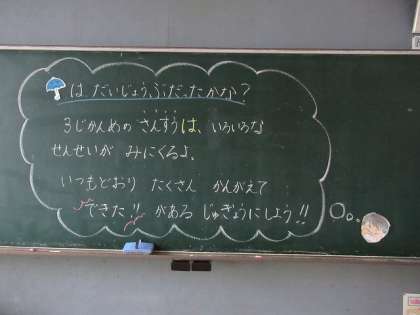 は だいじょうぶだったかな?
3じかんめの さんすうは、いろいろな
せんせいが みにくるよ。
いつもどおり たくさん かんがえて
できた!! がある じゅぎょうにしよう!!